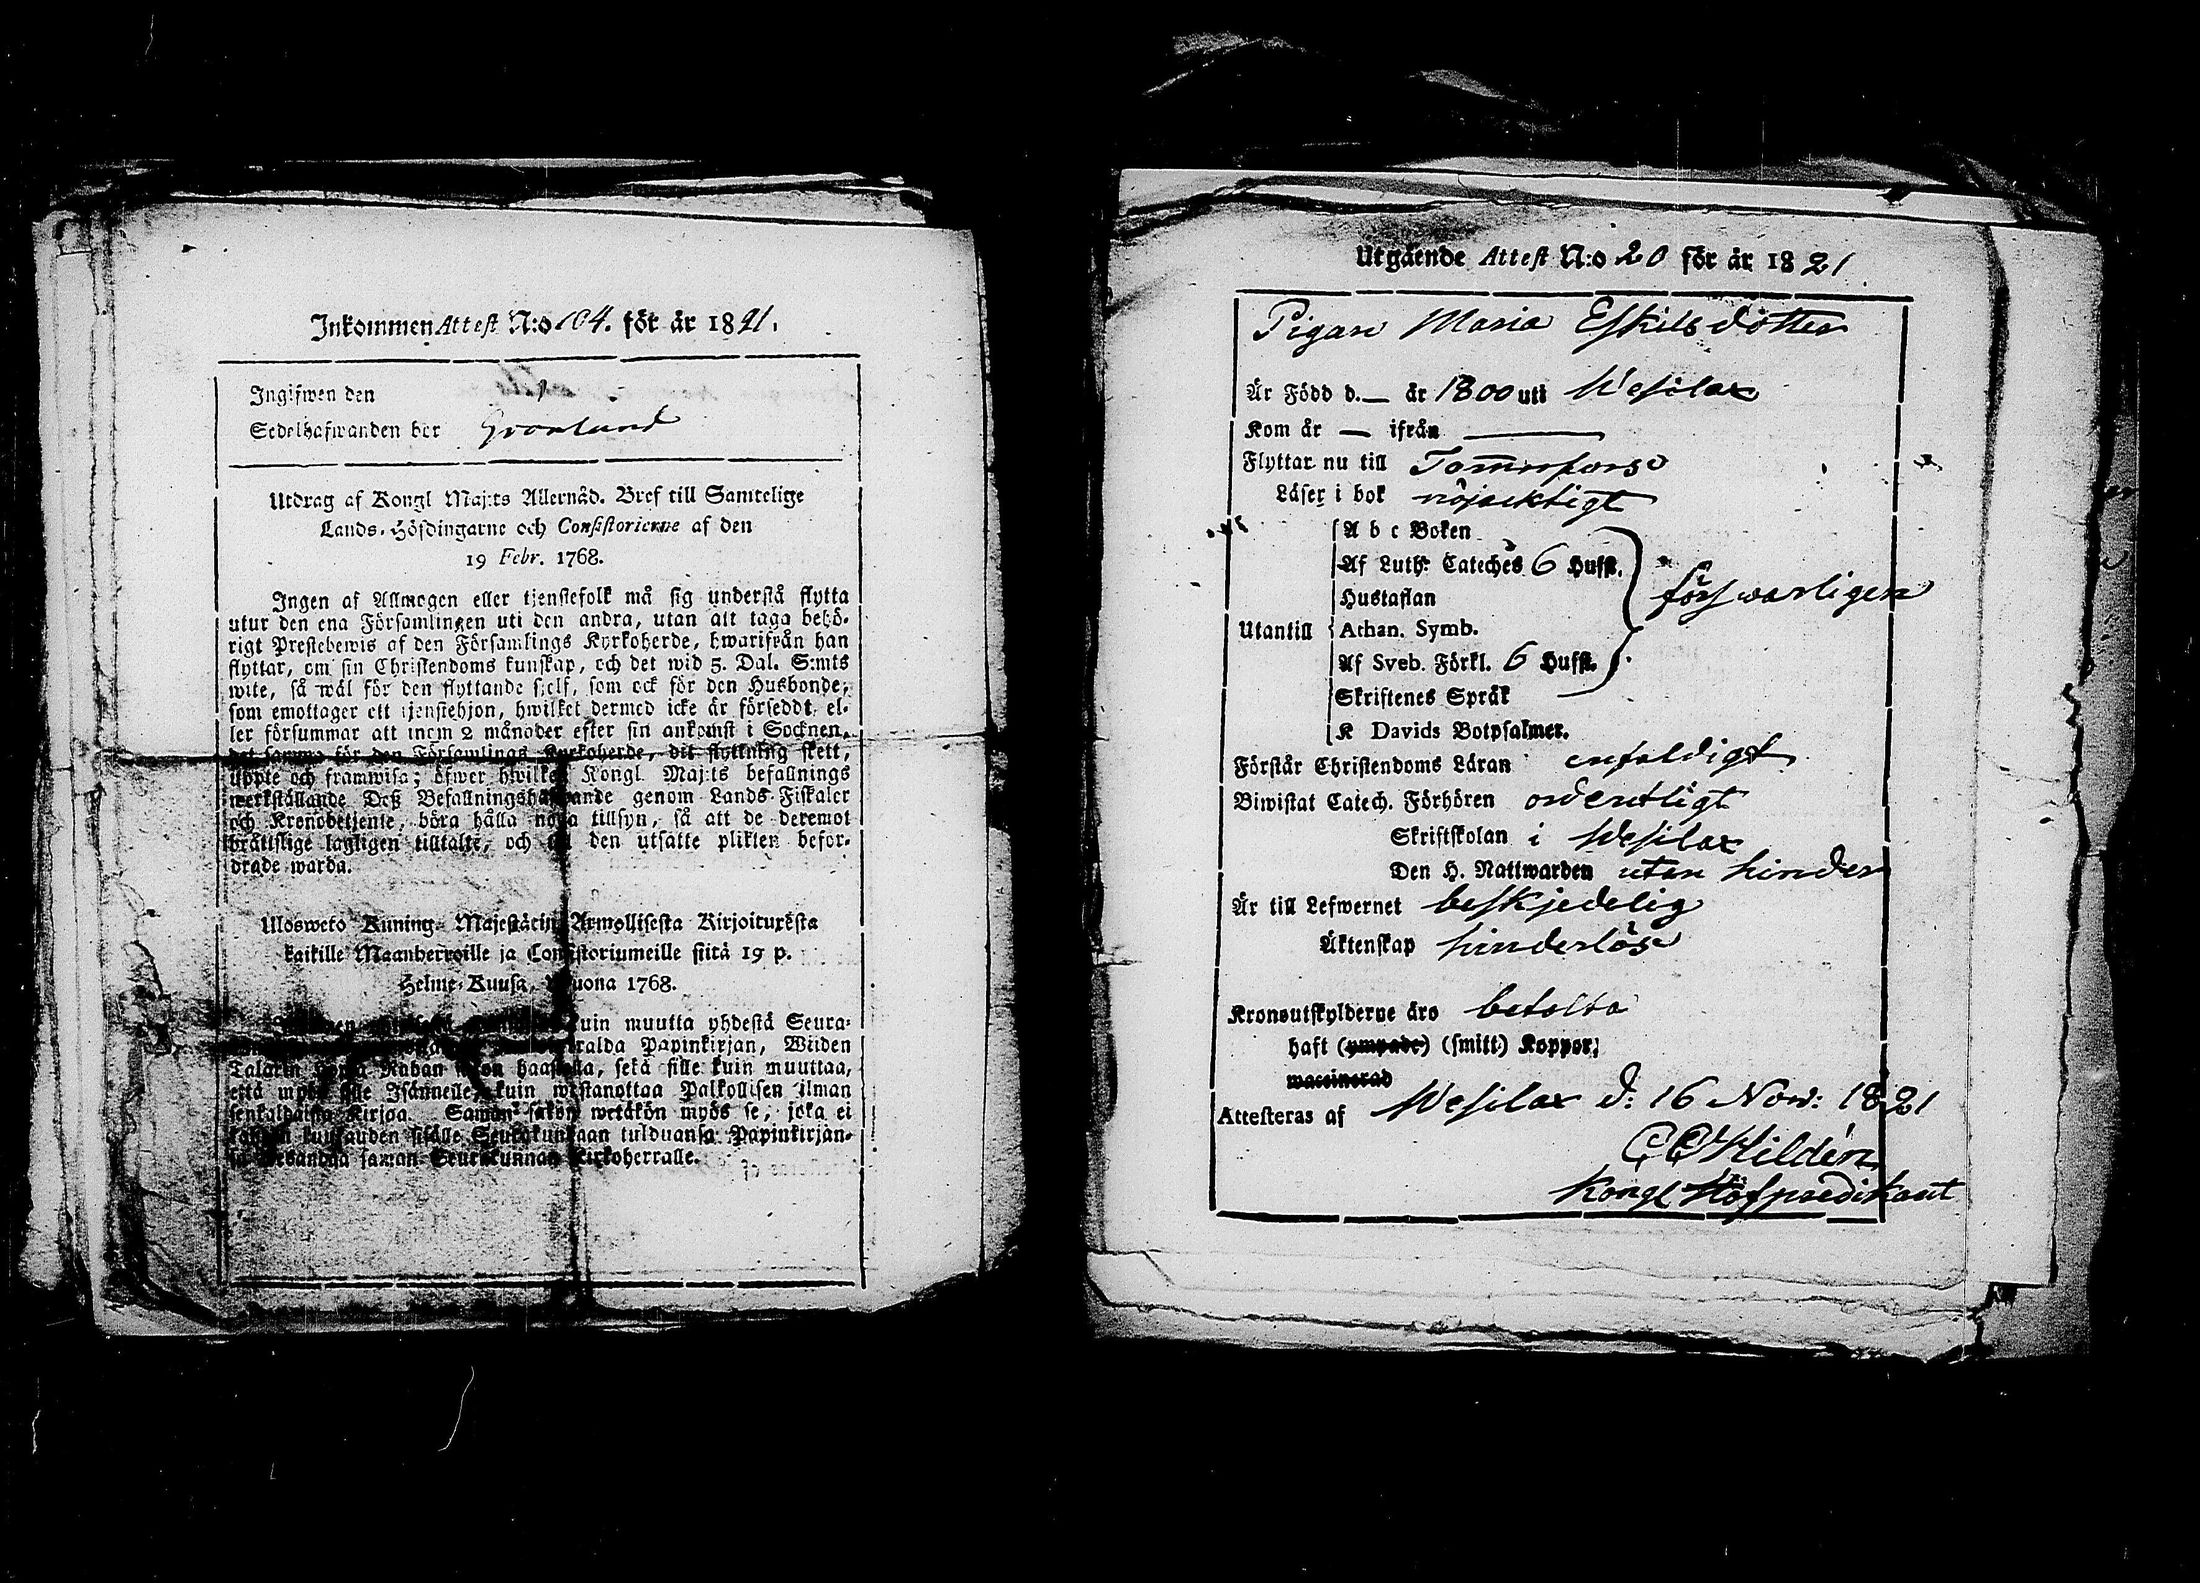 Inkommen Attest N:o 104. för år 1821.
Ingifwen den
Sedelhafwanden bor Gronlund
Utdrag af Kongl Maj:ts Allernåd. Bref till Samtelige
Lands-Höfdingarne och Consistorierne af den
19 Febr. 1768.
Ingen af Allmogen eller tjenstefolk må sig understå flytta
utur den ena Församlingen uti den andra, utan att taga behö-
rigt Prestebewis af den Församlings Kyrkoherde, hwarifrån han
flyttar, om sin Christendoms kunskap, och det wid 5. Dal. S:mts
wite, så wäl för den flyttande sjelf, som ock för den Husbonde,
som emottager ett tjenstehjon, hwilket dermed icke är försedt, el-
ler försummar att inom 2 månader efter sin ankomst i Socknen,
det samma för den Församlings Kyrkoherde, dit flyttning skett,
uppte och framwisa; öfwer hwilket Kongl Maj:ts befallnings
werkställande Deß Befallningshafwande genom Lands-Fiskaler
och Kronobetjente, böra hålla noga tillsyn, så att de deremot
bråttslige lagligen tilltalte, och den utsatte plikten befor-
drade warda.
Ulosweto Kuning- Majestätin Armollisesta Kirjoituxesta
kaikille Maanherroille ja Consistoriumeille siitä 19 p.
Helme-Kuusa, Wuona 1768.
kuin muutta yhdestä Seura-
Papinkirjan, Wiiden
Talarin Rahan haastolla, sekä sille kuin muuttaa,
että myös sille Isännelle, kuin wastanottaa Palkollisen ilman
senkaldaista Kirjaa. Saman sakon wetäkön myös se, joka ei
kuukauden sisälle Seurakundaan tulduansa Papinkirjan-
saman Seurakunnan Kirkoherralle.
Utgående Attest N:o 20 för år 1821
Pigan Maria Eskilsdotter
Är Född d. — år 1800 uti Wesilax
Kom år — ifrån —
Flyttar nu till Tammerfors
Läser i bok nöjacktigt
A b c Boken
Af Luth: Cateches 6 Hufst.
Hustaflan
försvarligen
Utantill
Athan. Symb.
Af Sveb. Förkl. 6 Hufst.
Skriftenes Språk
K Davids Botpsalmer.
Förstår Christendoms Läran enfaldigt
Biwistat Catech. Förhören ordentligt
Skriftskolan i Wesilax
Den H. Nattwarden utan hinder
Är till Lefwernet beskjedelig
Äktenskap hinderlös
Kronoutskylderne äro betalta
haft (ympade) (smitt) Koppor,
waccinerad
Attesteras af Wesilax d: 16 Nov: 1821
C C Hildén
Kongl Hofpredikant